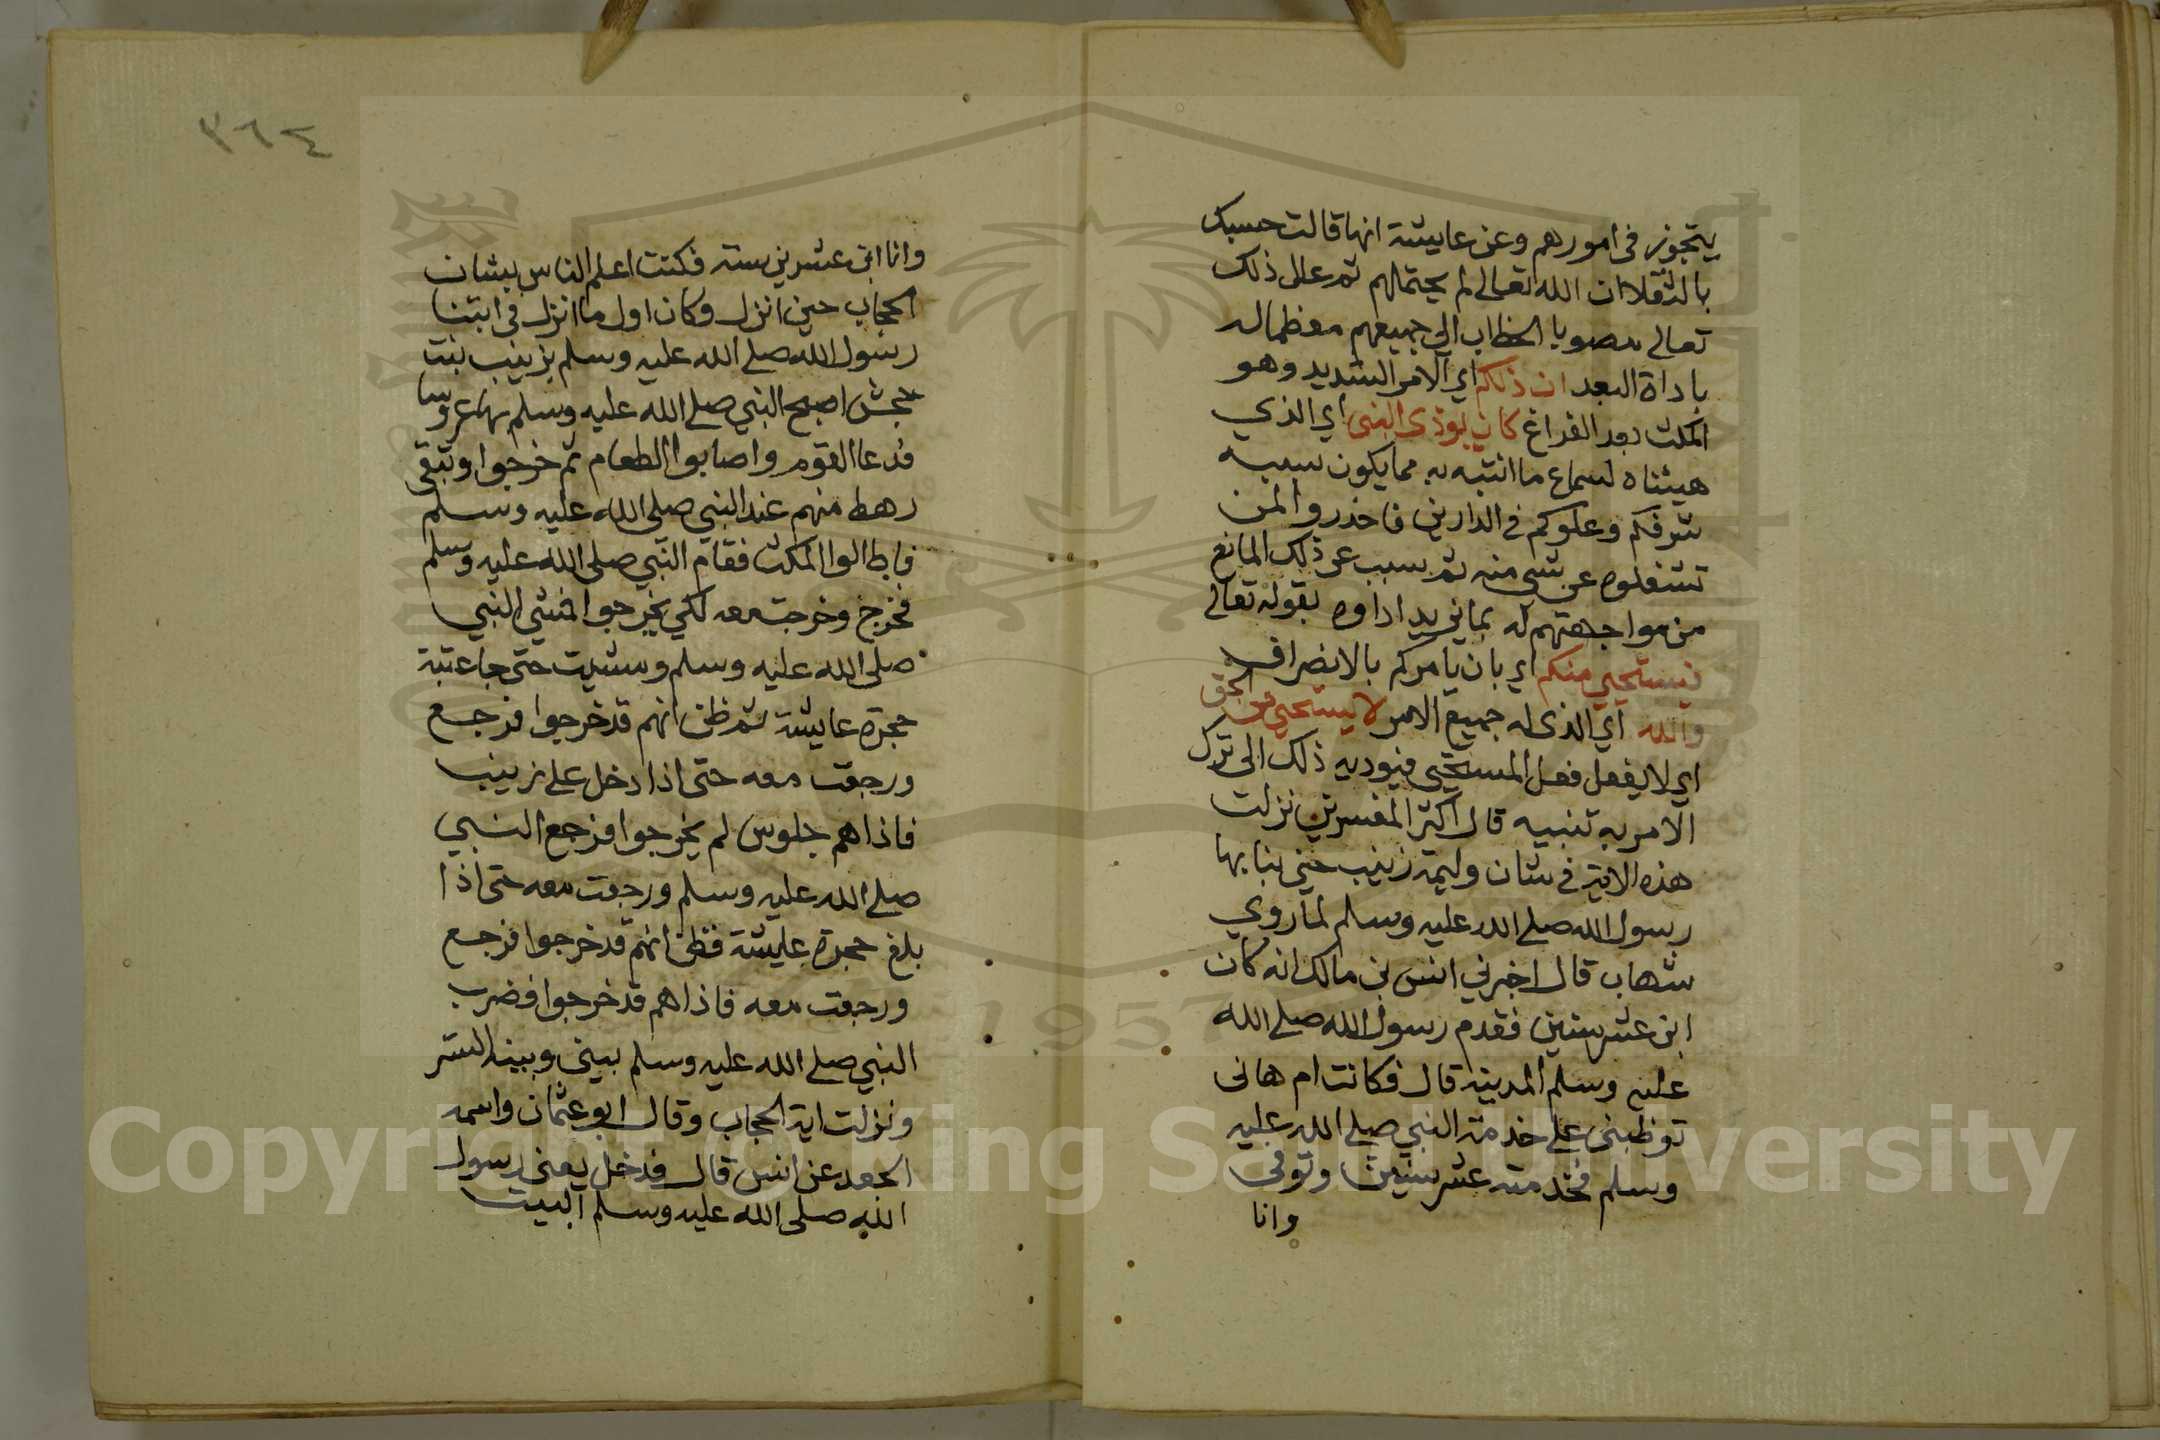 يتجوز في امورهم وعن عايشة انها قالت حسبك
بالثقلا ان الله تعالى لم يحتملهم ثم علل ذلك
تعالى مصوبا الخطاب الى جميعهم معظما له
باداة البعد ان ذلكم اي الامر الشديد وهو
المكث بعد الفراغ كان يوذى النبى اي الذي
هيئناه لسماع ما انتبه به مما يكون سببه
شرفكم وعلوكم في الدارين فاحذروا لمن
تشغلوه عن شي منه ثم سبب عن ذلك المانع
من مواجهتهم له بما يزيد اداوه بقوله تعالى
فيستحيي منكم اي بان يامركم بالانصراف
والله اي الذى له جميع الامر لا يستحيي من الحق
اي لا يفعل فعل المستحيي فيوديه ذلك الى ترك
الامر به تنبيه قال اكثر المفسرين نزلت
هذه الاية في شان وليمة زينب حين بنا بها
رسول الله صلى الله عليه وسلم لما روي
شهاب قال اخبرني انس بن مالك انه كان
ابن عشر سنين فقدم رسول الله صلى الله
عليه وسلم المدينة قال فكانت ام هانى
توظبنى على خدمة النبي صلى الله عليه
وسلم فخدمته عشر سنين وتوفى
وانا
٣٦٤
وانا ابن عشرين سنة فكنت اعلم الناس بشان
الحجاب حين انزل وكان اول ما انزل في ابتنا
رسول الله صلى الله عليه وسلم بزينب بنت
جحش اصبح النبي صلى الله عليه وسلم بها عروسا
فدعا القوم واصابوا الطعام ثم خرجوا وتبقى
رهط منهم عند النبي صلى الله عليه وسلم
فاطالوا المكث فقام النبي صلى الله عليه وسلم
فخرج وخرجت معه لكي يخرجوا فمشي النبي
صلى الله عليه وسلم ومشيت حتى جا عتبة
حجرة عايشة ثم ظن انهم قد خرجوا فرجع
ورجعت معه حتى اذا دخل على زينب
فاذا هم جلوس لم يخرجوا فرجع النبي
صلى الله عليه وسلم ورجعت معه حتى اذا
بلغ حجرة عايشة فظن انهم قد خرجوا فرجع
ورجعت معه فاذا هم قد خرجوا فضرب
النبي صلى الله عليه وسلم بينى وبينه الستر
ونزلت اية الحجاب وقال ابو عثمان واسمه
الجعد عن انس قال فدخل يعنى رسول
الله صلى الله عليه وسلم البيت
1957
Copyright © King Saud University